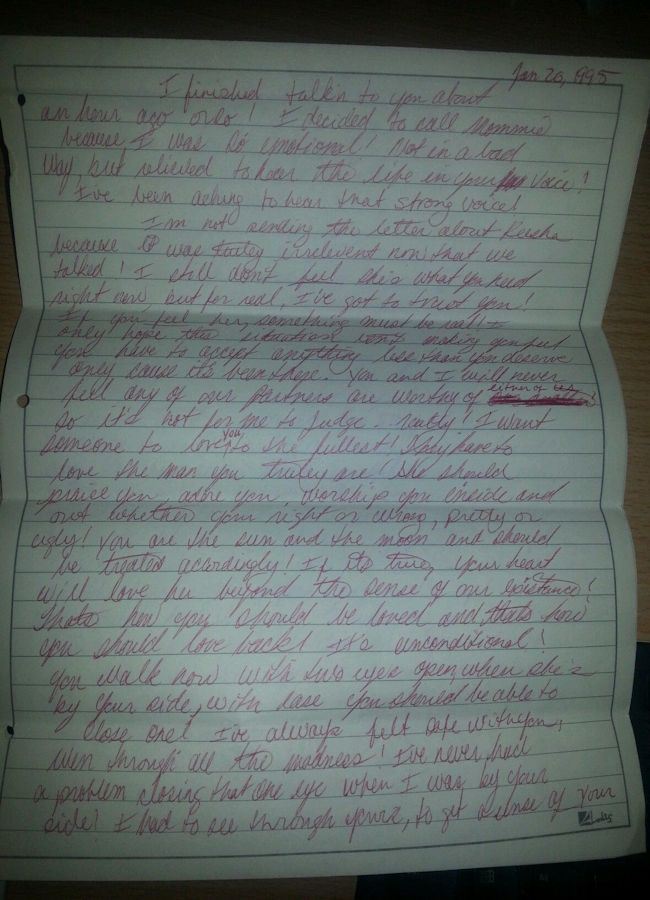 Jan 20, 1995
I finished talkin to you about
an hour ago or so! I decided to call Mommie
because I was so emotional! Not in a bad
way, but relieved to hear the life in your voice!
I've been aching to hear that strong voice!
I'm not sending the letter about Keisha
because it was truley irrelevent now that we
talked! I still don't feel she's what you need
right now but for real, I've got to trust you!
If you feel her, something must be real! I
only hope this situation isn't making you feel
you have to accept anything less than you deserve
only cause it's been there. You and I will never
feel any of our partners are worthy of either of us
so it's not for me to judge. really! I want
someone to love you to the fullest! They have to
love the man you truley are! She should
praise you, adore you, worship you inside and
out whether your right or wrong, pretty or
ugly! You are the sun and the moon and should
be treated accordingly! If its true, your heart
will love her beyond the sense of our existance!
Thats how you should be loved and thats how
you should love back! It's unconditional!
You walk now with two eyes open, when she's
by your side, with ease you should be able to
close one! I've always felt safe with you,
even through all the madness! I've never had
a problem closing that one eye when I was by your
side! I had to see through yours, to get a sense of your